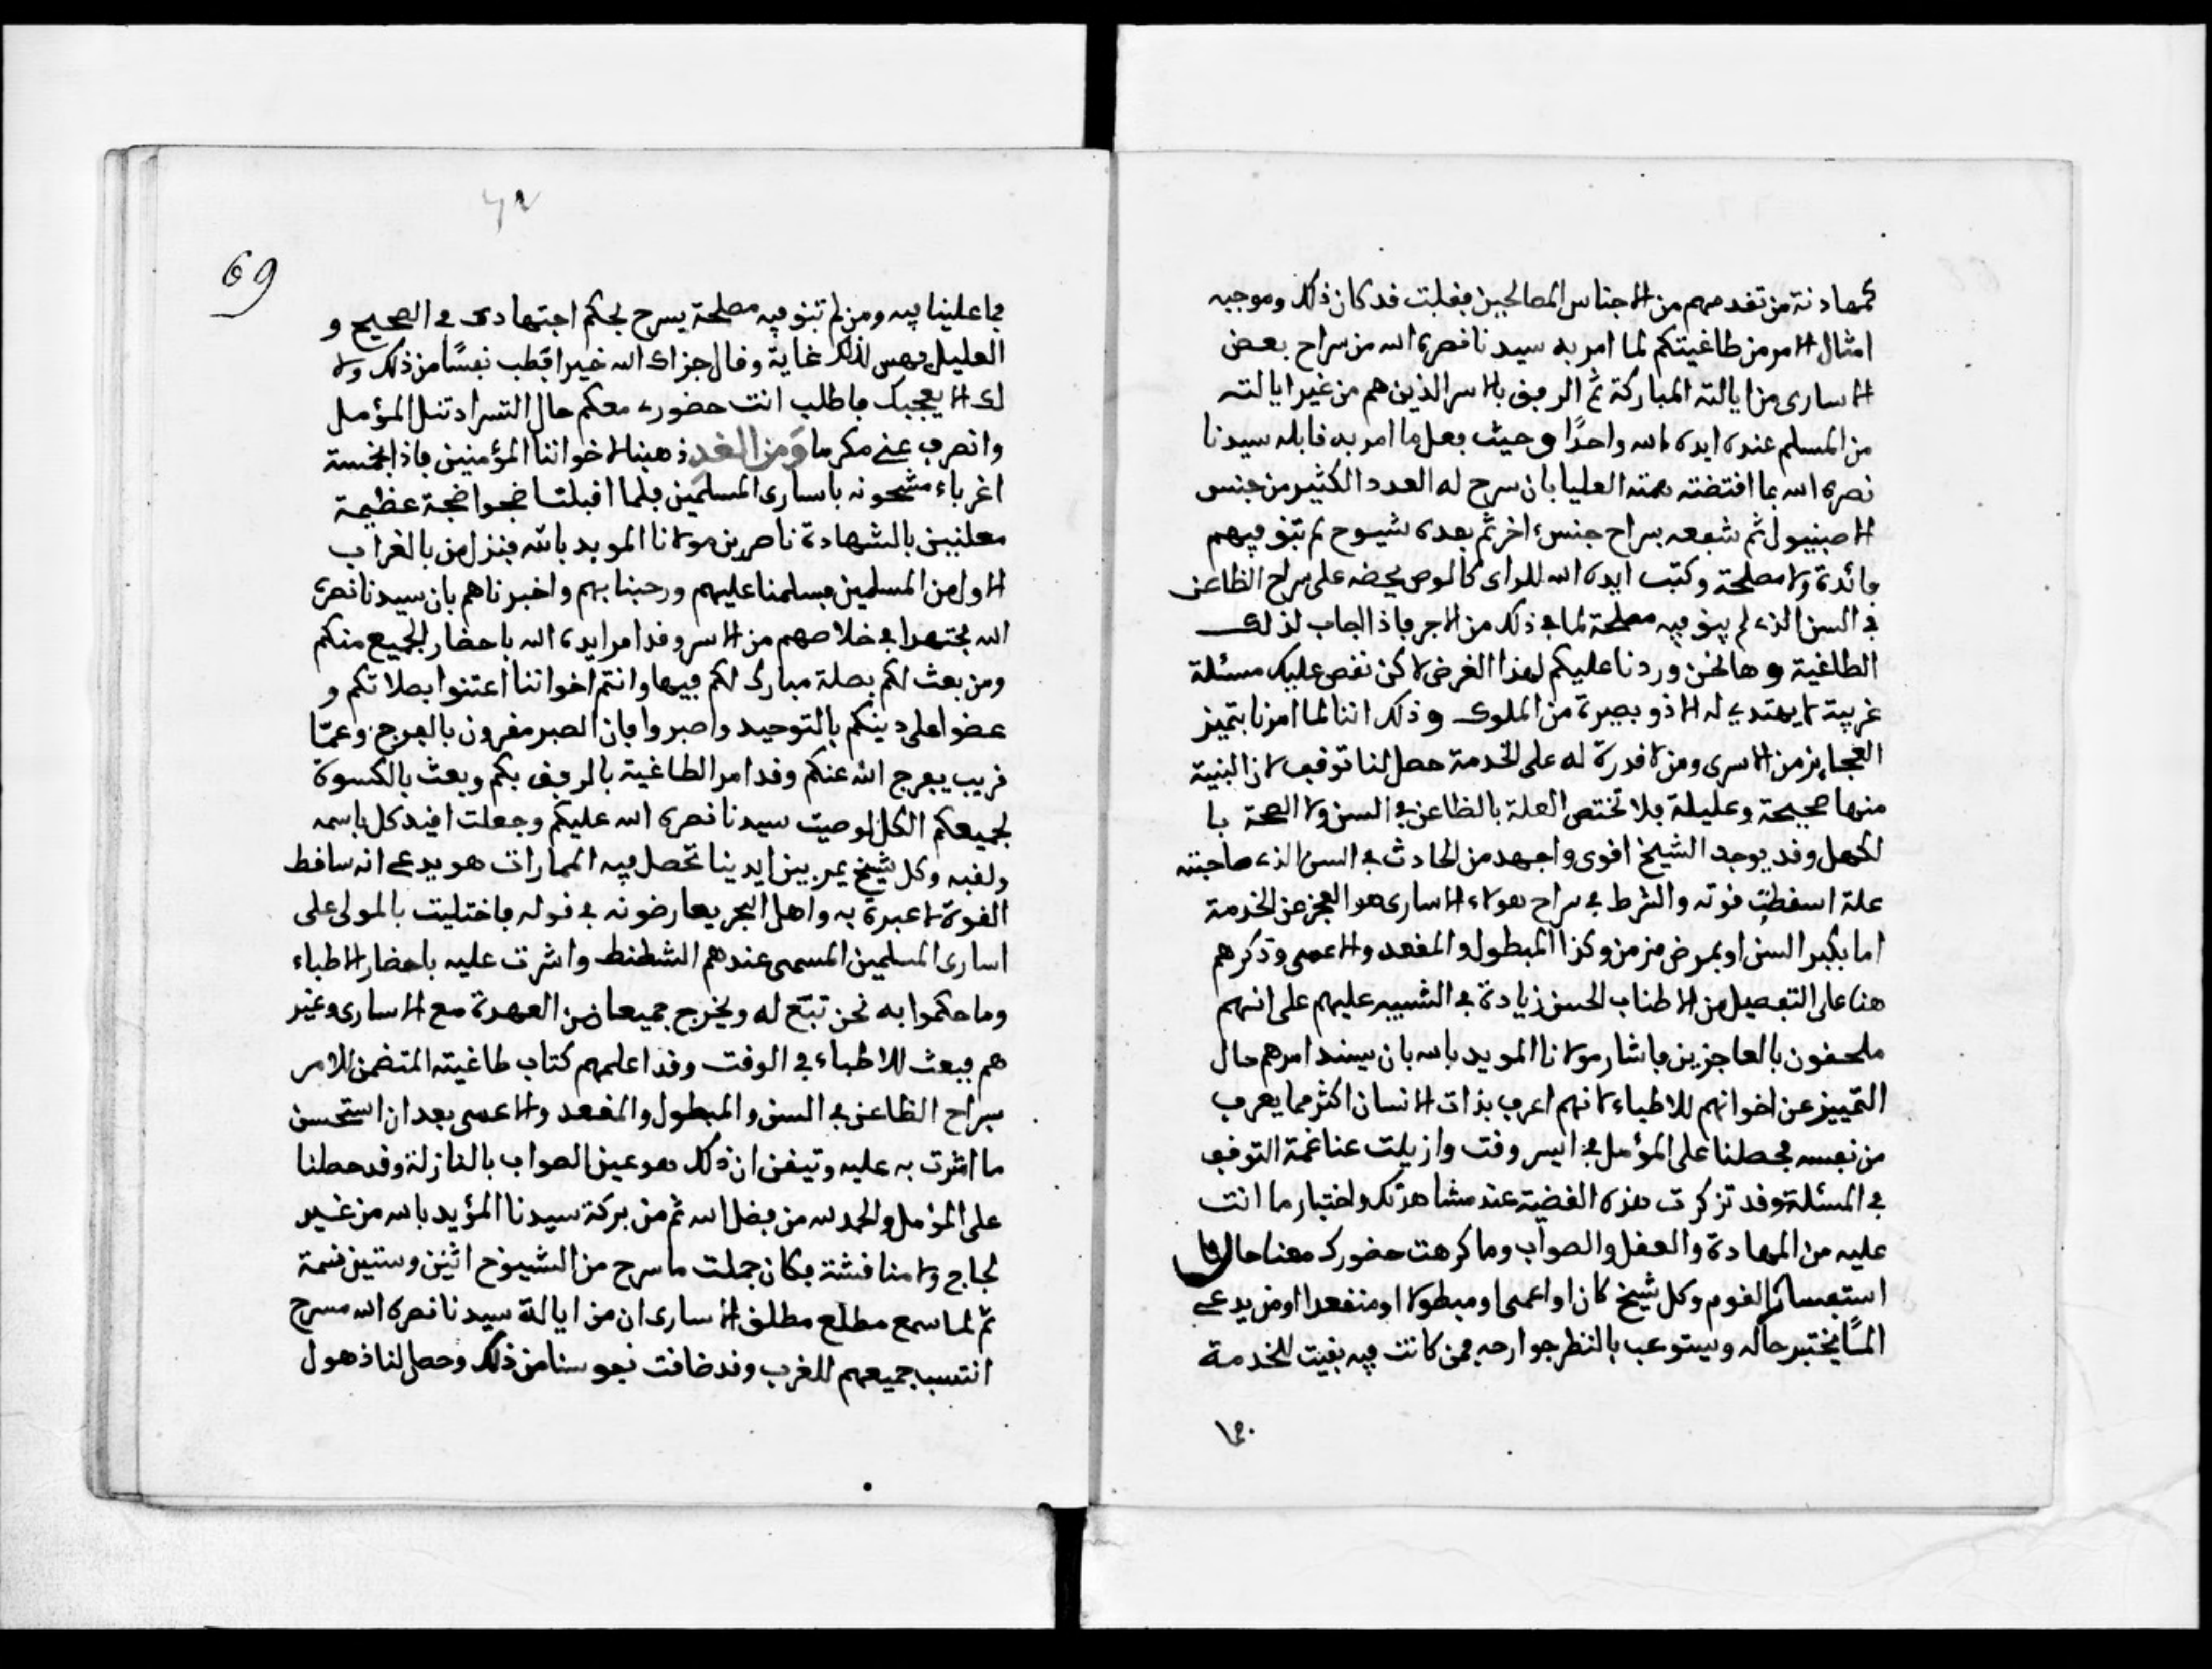 كمهادنة من تقدمهم من الاجناس المصالحين فقلت قد كان ذلك وموجبه
امثال الامر من طاغيتكم لما امر به سيدنا نصره الله من سراح بعض
الاسارى من ايالته المباركة ثم الرفق بالاسر الذين هم من غير ايالته
من المسلم عنده ايده الله واحدًا وحيث فعل ما امر به قابله سيدنا
نصره الله بما اقتضته همته العليا بان سرح له العدد الكثير من جنس
الاصبنيول ثم شفعه بسراح جنس اخر ثم بعده شيوح لم تبق فيهم
فائدة ولا مصلحة وكتب ايده الله للراى كالوص يحضه على سراح الظاعن
في السن الذي لم يبق فيه مصلحة لما في ذلك من الاجر فاذا اجاب لذلك
الطاغية وها نحن وردنا عليكم لهذا الغرض لاكن نقص عليك مسئلة
غريبة لا يهتدي له الا ذو بصيرة من الملوك وذلك اننا لما امرنا بتميز
العجايز من الاسرى ومن لا قدرة له على الخدمة حصل لنا توقف لان البنية
منها صحيحة وعليلة فلا تختص العلة بالظاعن في السن ولا الصحة با
لكهل وقد يوجد الشيخ اقوى واجهد من الحادث في السن الذي صاحبته
علة اسقطت قوته والشرط في سراح هولاء الاسارى هو العجز عن الخدمة
اما بكبر السن او بمرض مزمن وكذا المبطول والمقعد والاعمى وذكرهم
هنا على التفصيل من الاطناب الحسن زيادة في التنبيه عليهم على انهم
ملحقون بالعاجزين فاشار مولانا المويد بالله بان يسند امرهم حال
التمييز عن اخوانهم للاطباء لانهم اعرف بذات الانسان اكثر مما يعرف
من نفسه فحصلنا على المؤمل في ايسر وقت وازيلت عنا غمة التوقف
في المسئلة وقد تزكرت هذه القضية عند مشاهدتك واختبار ما انت
عليه من المهادة والعقل والصواب وما كرهت حضورك معنا حال
استفسار القوم وكل شيخ كان او اعمى او مبطولا او منقعدا او من يدعى
المًا يختبر حاله ويستوعب بالنظر جوارحه فمن كانت فيه بقيت للخدمة
فما
69
فما علينا فيه ومن لم تبق فيه مصلحة يسرح بحكم اجتهادى في الصحيح و
العليل فهس لذلك غاية وقال جزاك الله خيرا فطب نفسًا من ذلك ولا
لك الا يعجبك فاطلب انت حضورى معكم حال التسراد تنل المؤمل
وانصرف عني مكرما ومن الغد ذهبنا لاخواننا المؤمنين فاذا بخمسة
اغرباء مشحونه باسارى المسلمين فلما اقبلت ضجوا ضجة عظيمة
معلنين بالشهادة ناصرين مولانا المويد بالله فنزل من بالغراب
الاول من المسلمين فسلمنا عليهم ورحبنا بهم واخبرناهم بان سيدنا نصره
الله مجتهدا في خلاصهم من الاسر وقد امر ايده الله باحضار الجميع منكم
ومن بعث لكم بصلة مبارك لكم فيها وانتم اخواننا اعتنوا بصلاتكم و
عضوا على دينكم بالتوحيد واصبروا فان الصبر مقرون بالفرج وعمّا
قريب يفرج الله عنكم وقد امر الطاغية بالرفق بكم وبعث بالكسوة
لجميعكم الكل لوصيت سيدنا نصره الله عليكم وجعلت اقيد كل باسمه
ولقبه وكل شيخ يمر بين ايدينا تحصل فيه الممارات هو يدعي انه ساقط
القوة لا عبرة به واهل البحر يعارضونه في قوله فاختليت بالمولى على
اسارى المسلمين المسمى عندهم الشطنط واشرت عليه باحضار الاطباء
وما حكموا به نحن تبّع له ويخرج جميعا من العهدة مع الاسارى وغير
هم فبعث للاطباء في الوقت وقد اعلمهم كتاب طاغيته المتضمن للامر
بسراح الظاعن في السن والمبطول والمقعد والاعمى بعد ان استحسن
ما اشرت به عليه وتيقن ان ذلك هو عين الصواب بالنازلة وقد حصلنا
على المؤمل والحمد لله من فضل الله ثم من بركة سيدنا المؤيد بالله من غير
لجاج ولا مناقشة فكان جملت ما سرح من الشيوخ اثنين وستين نسمة
ثم لما سمع مطلع مطلق الاسارى ان من ايالة سيدنا نصره الله مسرح
انتسب جميعهم للغرب وقد ضاقت نفوسنا من ذلك وحصل لنا ذهول